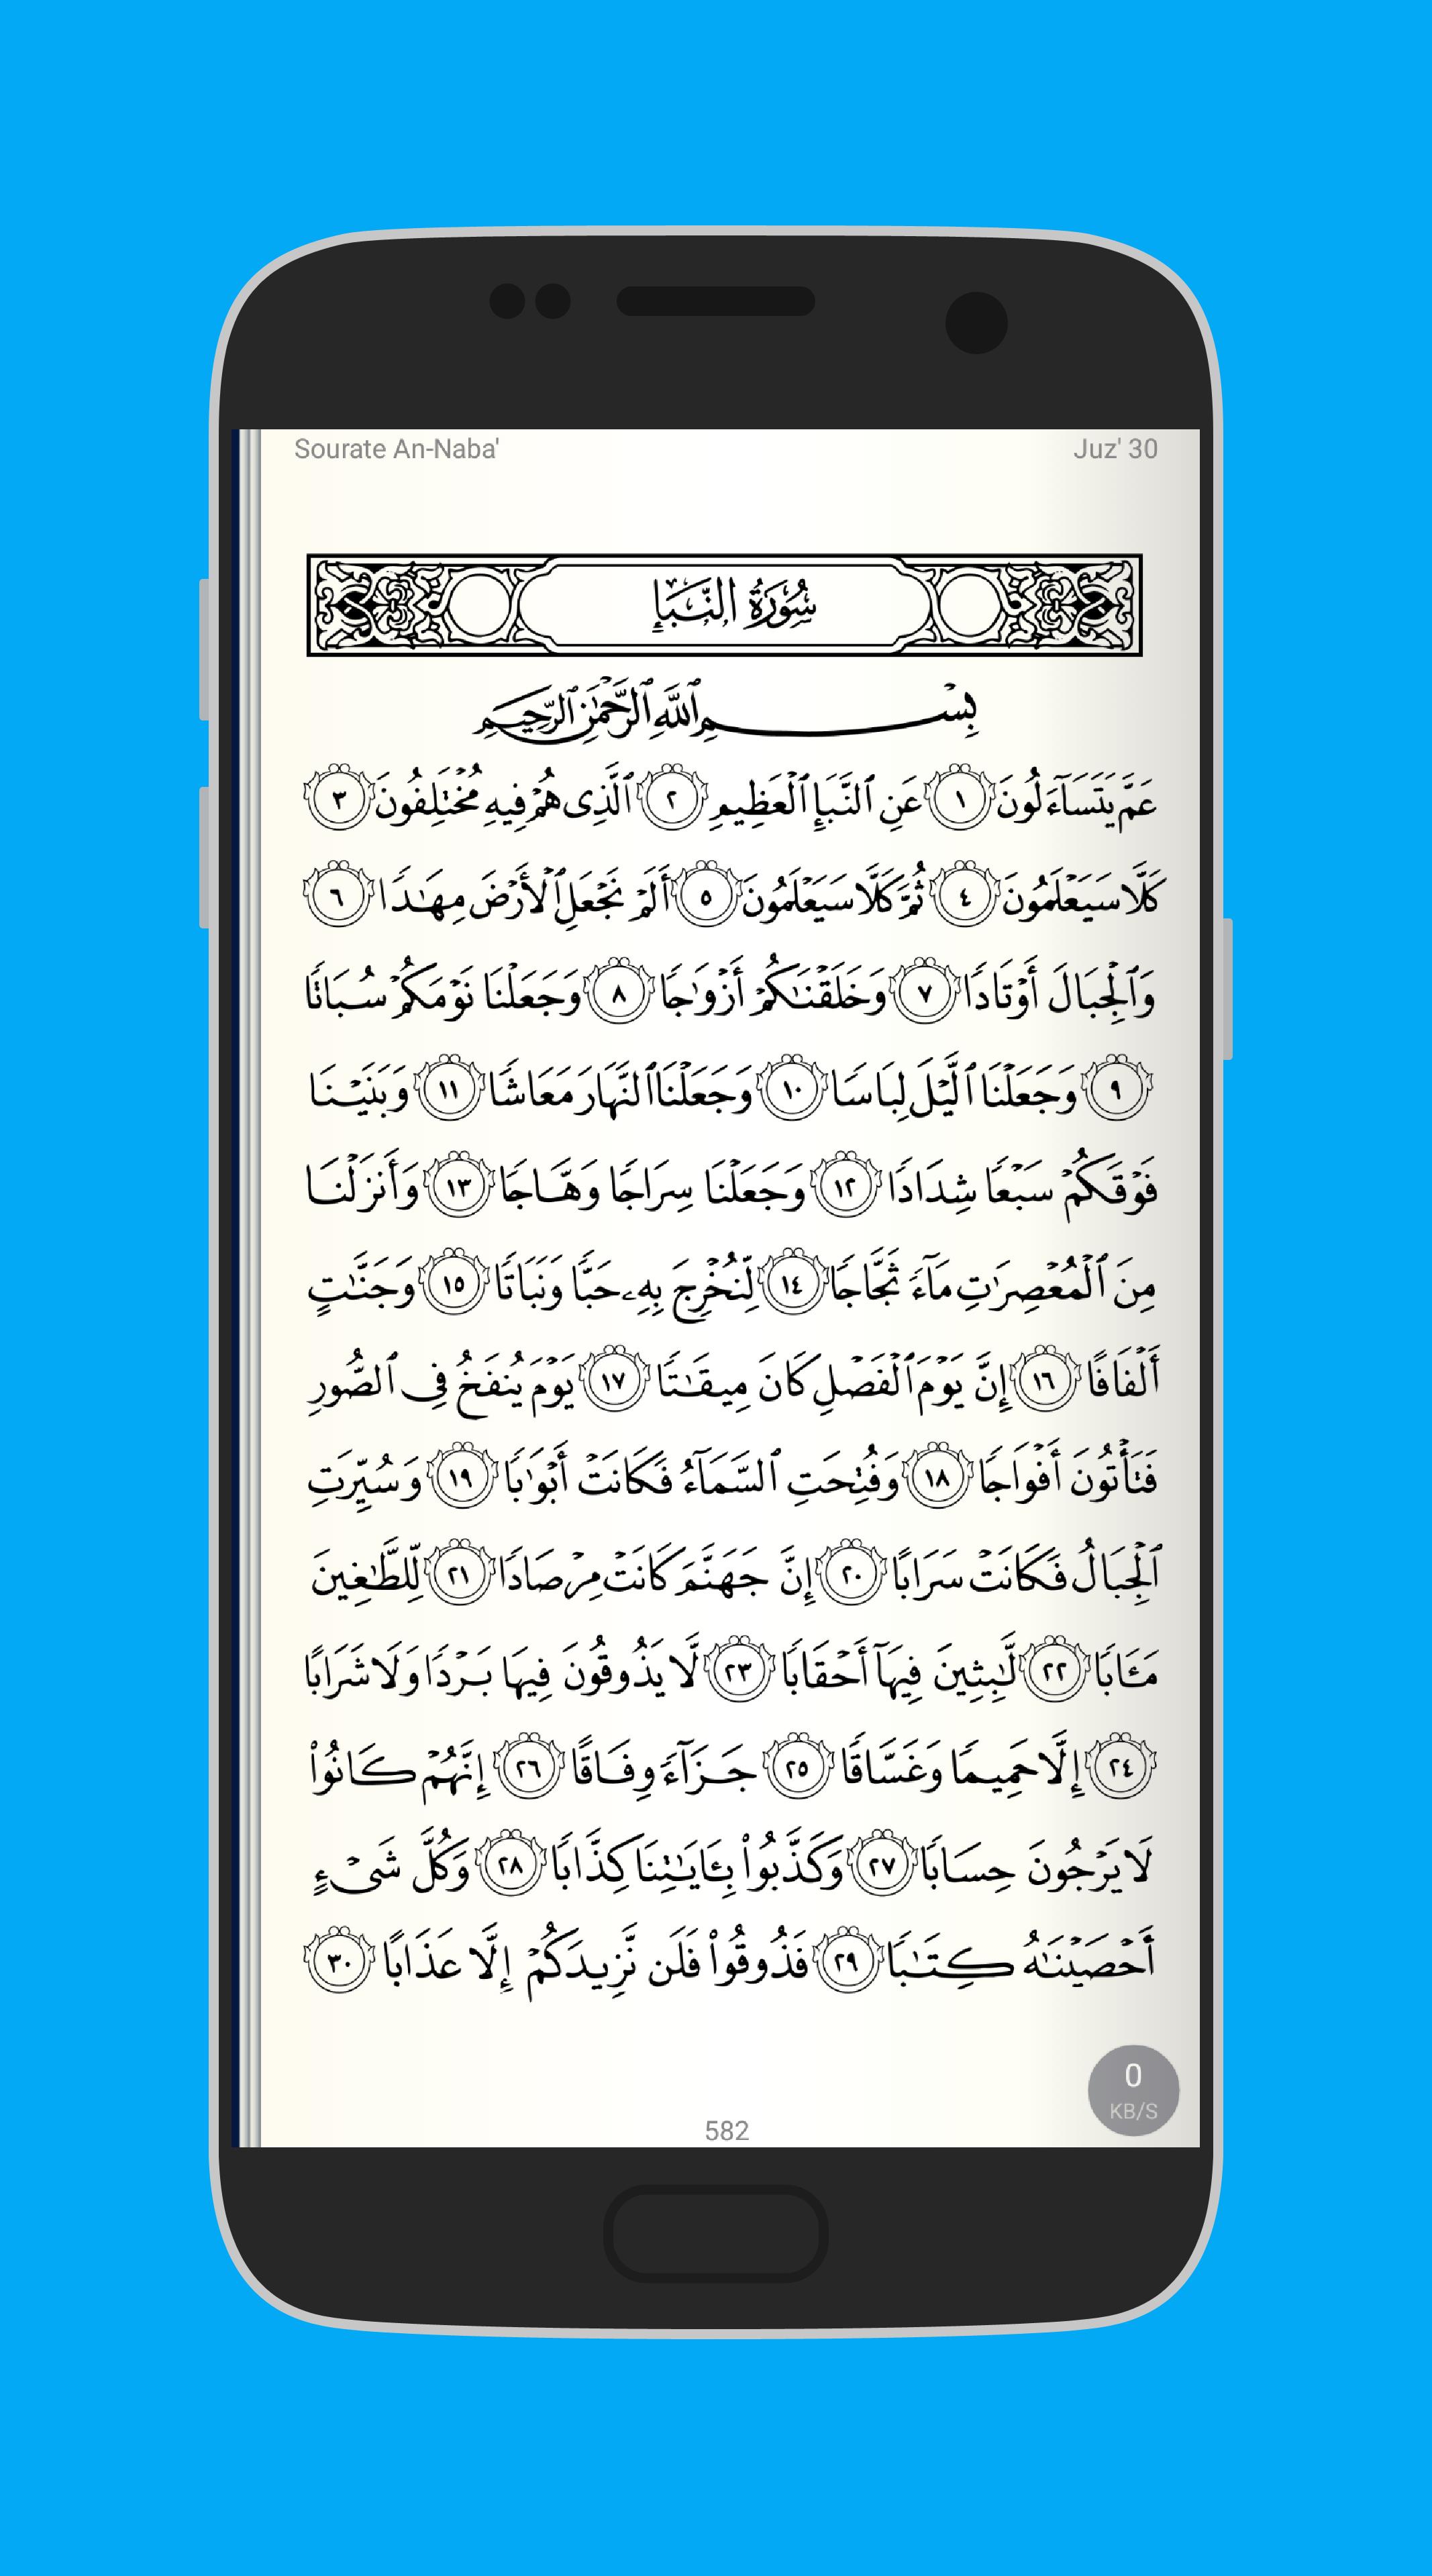 Sourate An-Naba' Juz' 30
سُورَةُ النَّبَإِ
بِسْمِ ٱللَّهِ ٱلرَّحْمَٰنِ ٱلرَّحِيمِ
عَمَّ يَتَسَآءَلُونَ ١ عَنِ ٱلنَّبَإِ ٱلْعَظِيمِ ٢ ٱلَّذِى هُمْ فِيهِ مُخْتَلِفُونَ ٣
كَلَّا سَيَعْلَمُونَ ٤ ثُمَّ كَلَّا سَيَعْلَمُونَ ٥ أَلَمْ نَجْعَلِ ٱلْأَرْضَ مِهَٰدًا ٦
وَٱلْجِبَالَ أَوْتَادًا ٧ وَخَلَقْنَٰكُمْ أَزْوَٰجًا ٨ وَجَعَلْنَا نَوْمَكُمْ سُبَاتًا
٩ وَجَعَلْنَا ٱلَّيْلَ لِبَاسًا ١٠ وَجَعَلْنَا ٱلنَّهَارَ مَعَاشًا ١١ وَبَنَيْنَا
فَوْقَكُمْ سَبْعًا شِدَادًا ١٢ وَجَعَلْنَا سِرَاجًا وَهَّاجًا ١٣ وَأَنزَلْنَا
مِنَ ٱلْمُعْصِرَٰتِ مَآءً ثَجَّاجًا ١٤ لِّنُخْرِجَ بِهِۦ حَبًّا وَنَبَاتًا ١٥ وَجَنَّٰتٍ
أَلْفَافًا ١٦ إِنَّ يَوْمَ ٱلْفَصْلِ كَانَ مِيقَٰتًا ١٧ يَوْمَ يُنفَخُ فِى ٱلصُّورِ
فَتَأْتُونَ أَفْوَاجًا ١٨ وَفُتِحَتِ ٱلسَّمَآءُ فَكَانَتْ أَبْوَٰبًا ١٩ وَسُيِّرَتِ
ٱلْجِبَالُ فَكَانَتْ سَرَابًا ٢٠ إِنَّ جَهَنَّمَ كَانَتْ مِرْصَادًا ٢١ لِّلطَّٰغِينَ
مَـَٔابًا ٢٢ لَّٰبِثِينَ فِيهَآ أَحْقَابًا ٢٣ لَّا يَذُوقُونَ فِيهَا بَرْدًا وَلَا شَرَابًا
٢٤ إِلَّا حَمِيمًا وَغَسَّاقًا ٢٥ جَزَآءً وِفَاقًا ٢٦ إِنَّهُمْ كَانُوا۟
لَا يَرْجُونَ حِسَابًا ٢٧ وَكَذَّبُوا۟ بِـَٔايَٰتِنَا كِذَّابًا ٢٨ وَكُلَّ شَىْءٍ
أَحْصَيْنَٰهُ كِتَٰبًا ٢٩ فَذُوقُوا۟ فَلَن نَّزِيدَكُمْ إِلَّا عَذَابًا ٣٠
0
KB/S
582